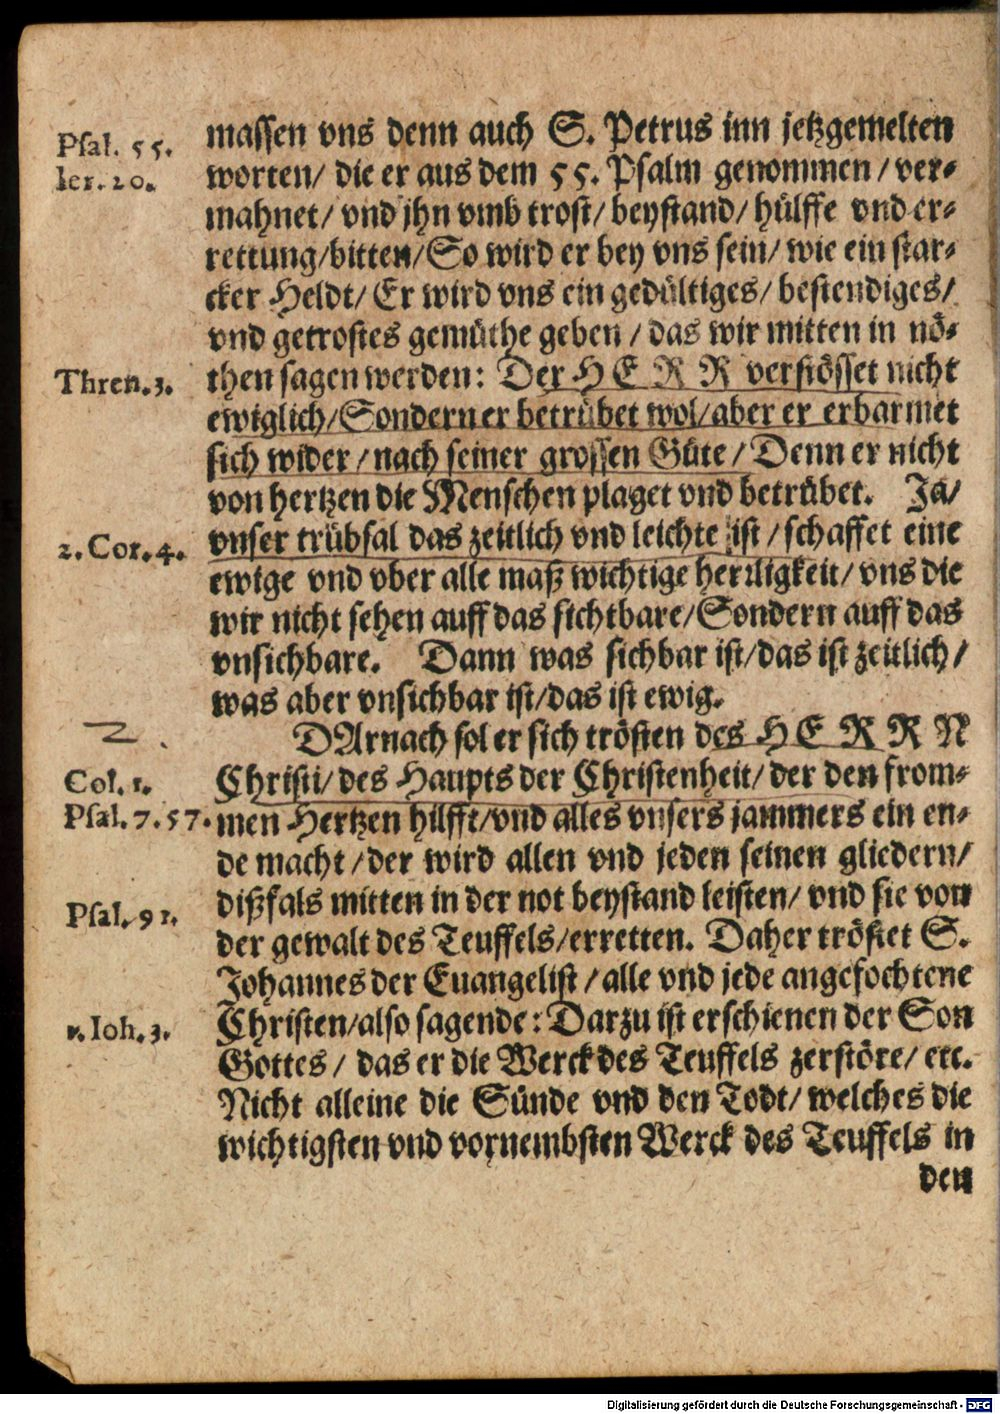 Psal. 55.
Ier. 20.
massen vns denn auch S. Petrus inn jetzgemelten
worten/ die er aus dem 55. Psalm genommen / ver-
mahnet/ vnd jhn vmb trost/ beystand/ hülffe vnd er-
rettung/bitten/So wird er bey vns sein/ wie ein star-
cker Heldt/ Er wird vns ein gedültiges/ bestendiges/
vnd getrostes gemüthe geben / das wir mitten in nö-
Thren. 3.
then sagen werden: Der HERR verstösset nicht
ewiglich/Sondern er betrübet wol/aber er erbarmet
sich wider / nach seiner grossen Güte / Denn er nicht
von hertzen die Menschen plaget vnd betrübet. Ja/
2. Cor. 4.
vnser trübsal das zeitlich vnd leichte ist / schaffet eine
ewige vnd vber alle maß wichtige herrligkeit/ vns die
wir nicht sehen auff das sichtbare/Sondern auff das
vnsichbare. Dann was sichbar ist/das ist zeitlich/
was aber vnsichbar ist/das ist ewig.
2.
DArnach sol er sich trösten des HERRN
Col. 1.
Christi/ des Haupts der Christenheit/ der den from-
Psal. 7. 57.
men Hertzen hilfft/vnd alles vnsers jammers ein en-
de macht / der wird allen vnd jeden seinen gliedern/
dißfals mitten in der not beystand leisten/ vnd sie von
Psal. 91.
der gewalt des Teuffels/erretten. Daher tröstet S.
Johannes der Euangelist / alle vnd jede angefochtene
1. Ioh. 3.
Christen/also sagende: Darzu ist erschienen der Son
Gottes / das er die Werck des Teuffels zerstöre/ etc.
Nicht alleine die Sünde vnd den Todt/ welches die
wichtigsten vnd vornembsten Werck des Teuffels in
den
Digitalisierung gefördert durch die Deutsche Forschungsgemeinschaft - DFG